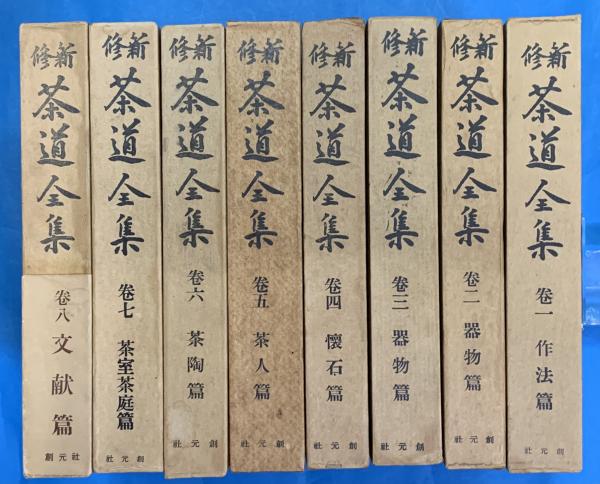 新修
茶道全集
卷一 作法篇
創元社
新修
茶道全集
卷二 器物篇
創元社
新修
茶道全集
卷三 器物篇
創元社
新修
茶道全集
卷四 懷石篇
創元社
新修
茶道全集
卷五 茶人篇
創元社
新修
茶道全集
卷六 茶陶篇
創元社
新修
茶道全集
卷七 茶室茶庭篇
創元社
新修
茶道全集
卷八 文献篇
創元社